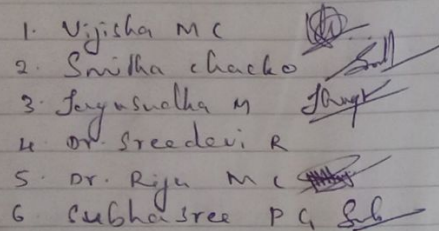 1. Vijisha M C
2. Smitha chacko
3. Jayasudha M
4. Dr. Sreedevi R
5. Dr. Riju M C
6 Subhasree P G